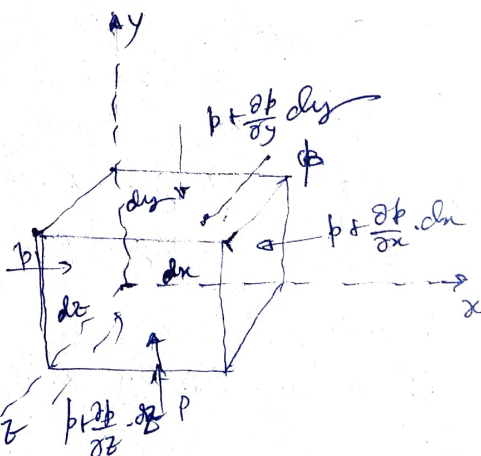 y
p + ∂p/∂y dy
dy
p
p + ∂p/∂x . dx
dx
dz
x
z
p + ∂p/∂z . dz
p